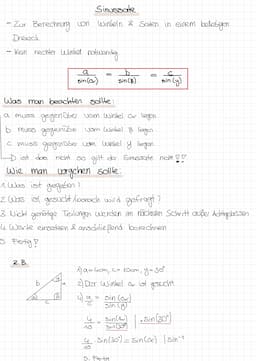 Sinussatz
- Zur Berechnung von Winkeln & Seiten in einem beliebigen
Dreieck
- Kein rechter Winkel notwendig
a/sin(α) = b/sin(β) = c/sin(γ)
Was man beachten sollte:
a muss gegenüber vom Winkel α liegen
b muss gegenüber vom Winkel β liegen
c muss gegenüber vom Winkel γ liegen
→ ist das nicht so gilt der Sinussatz nicht!!
Wie man vorgehen sollte:
1. Was ist gegeben?
2. Was ist gesucht / wonach wird gefragt?
3. Nicht benötigte Teilungen werden im nächsten Schritt außer Acht gelassen
4. Werte einsetzen & anschließend berechnen
5. Fertig!
z.B.
1) a=4cm, c=10cm, γ=30°
2) Der Winkel α ist gesucht
3) a/c = sin(α)/sin(γ)
4/10 = sin(α)/sin(30°) | ·sin(30°)
4/10 · sin(30°) = sin(α) | sin⁻¹
5. Fertig